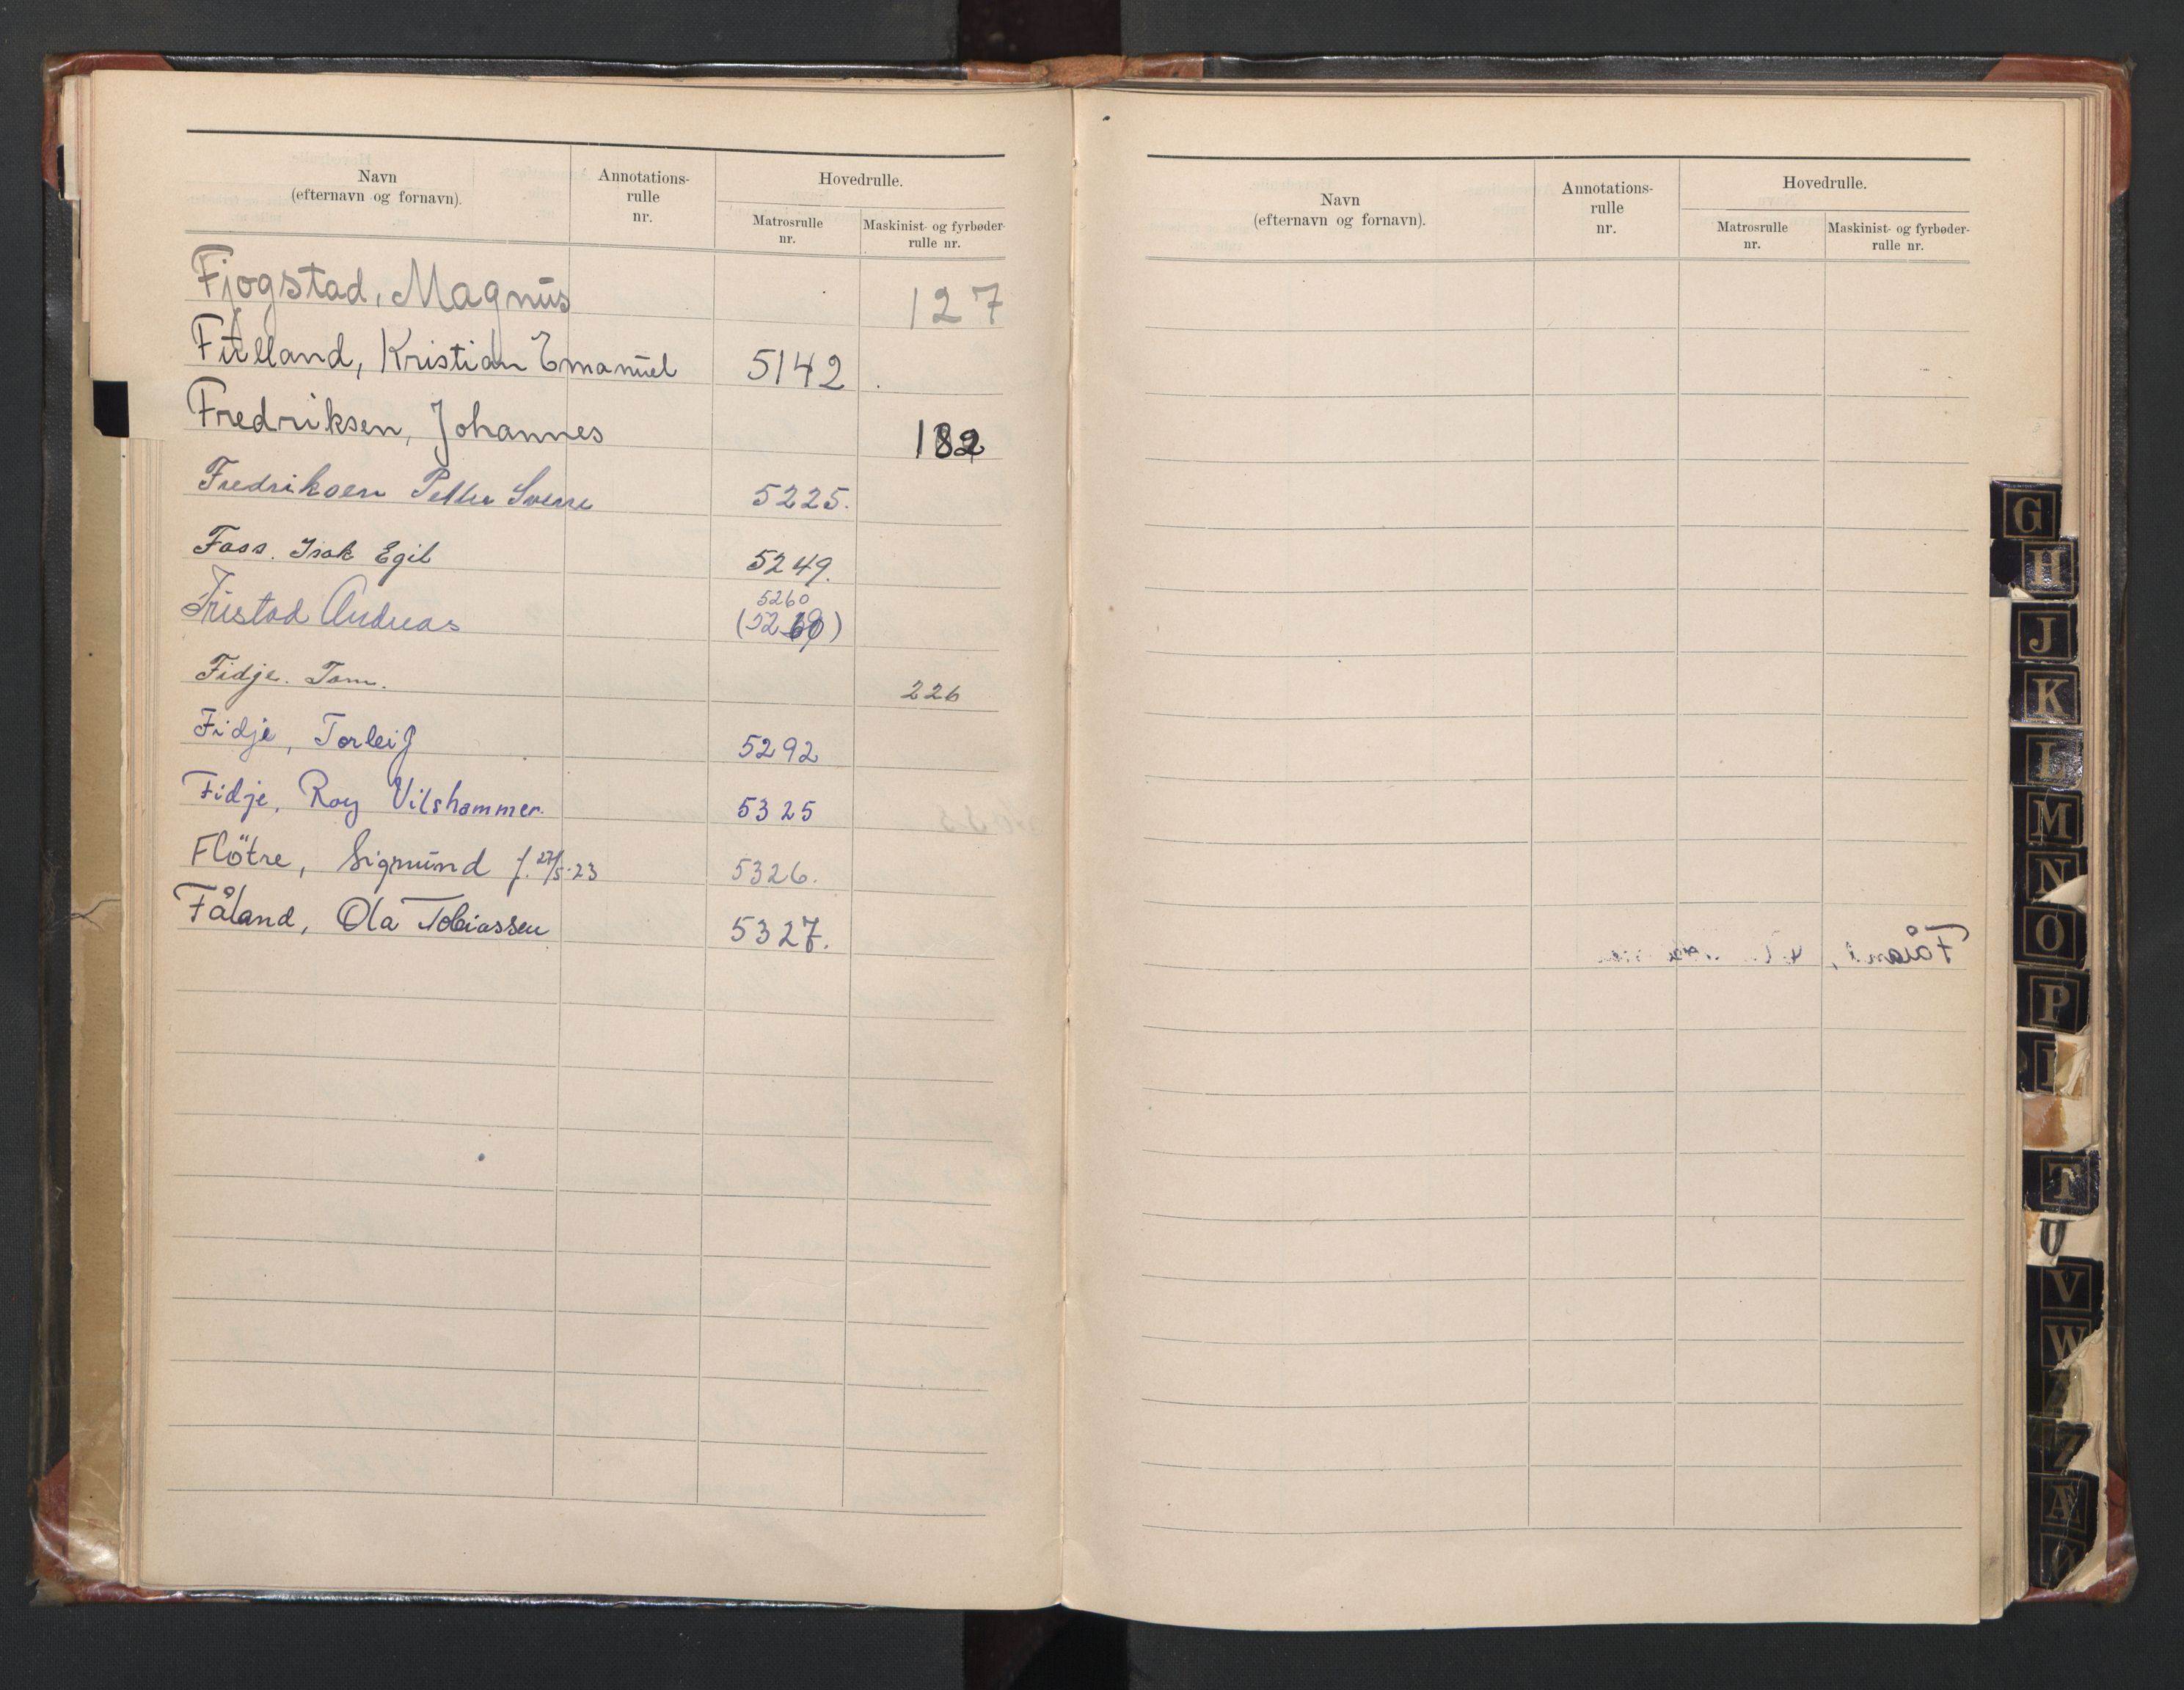 Navn
(efternavn og fornavn).
Annotations-
rulle
nr.
Hovedrulle.
Matrosrulle
nr.
Maskinist- og fyrbøder-
rulle nr.
Fjogstad, Magnus 127
Fitelland, Kristian Emanuel 5142
Fredriksen, Johannes 182
Fredriksen Petter Sverre 5225.
Foss. Isak Egil 5249.
5260
Fristad Andreas (5260)
Fidje. Tom. 226
Fidje, Torleif 5292
Fidje, Roy Vilshammer. 5325
Flötre, Sigmund f. 27/5-23 5326.
Fåland, Ola Tobiassen 5327.
Navn
(efternavn og fornavn).
Annotations-
rulle
nr.
Hovedrulle.
Matrosrulle
nr.
Maskinist- og fyrbøder-
rulle nr.
G
H
J
K
L
M
N
O
P
T
U
V
W
Z
Æ